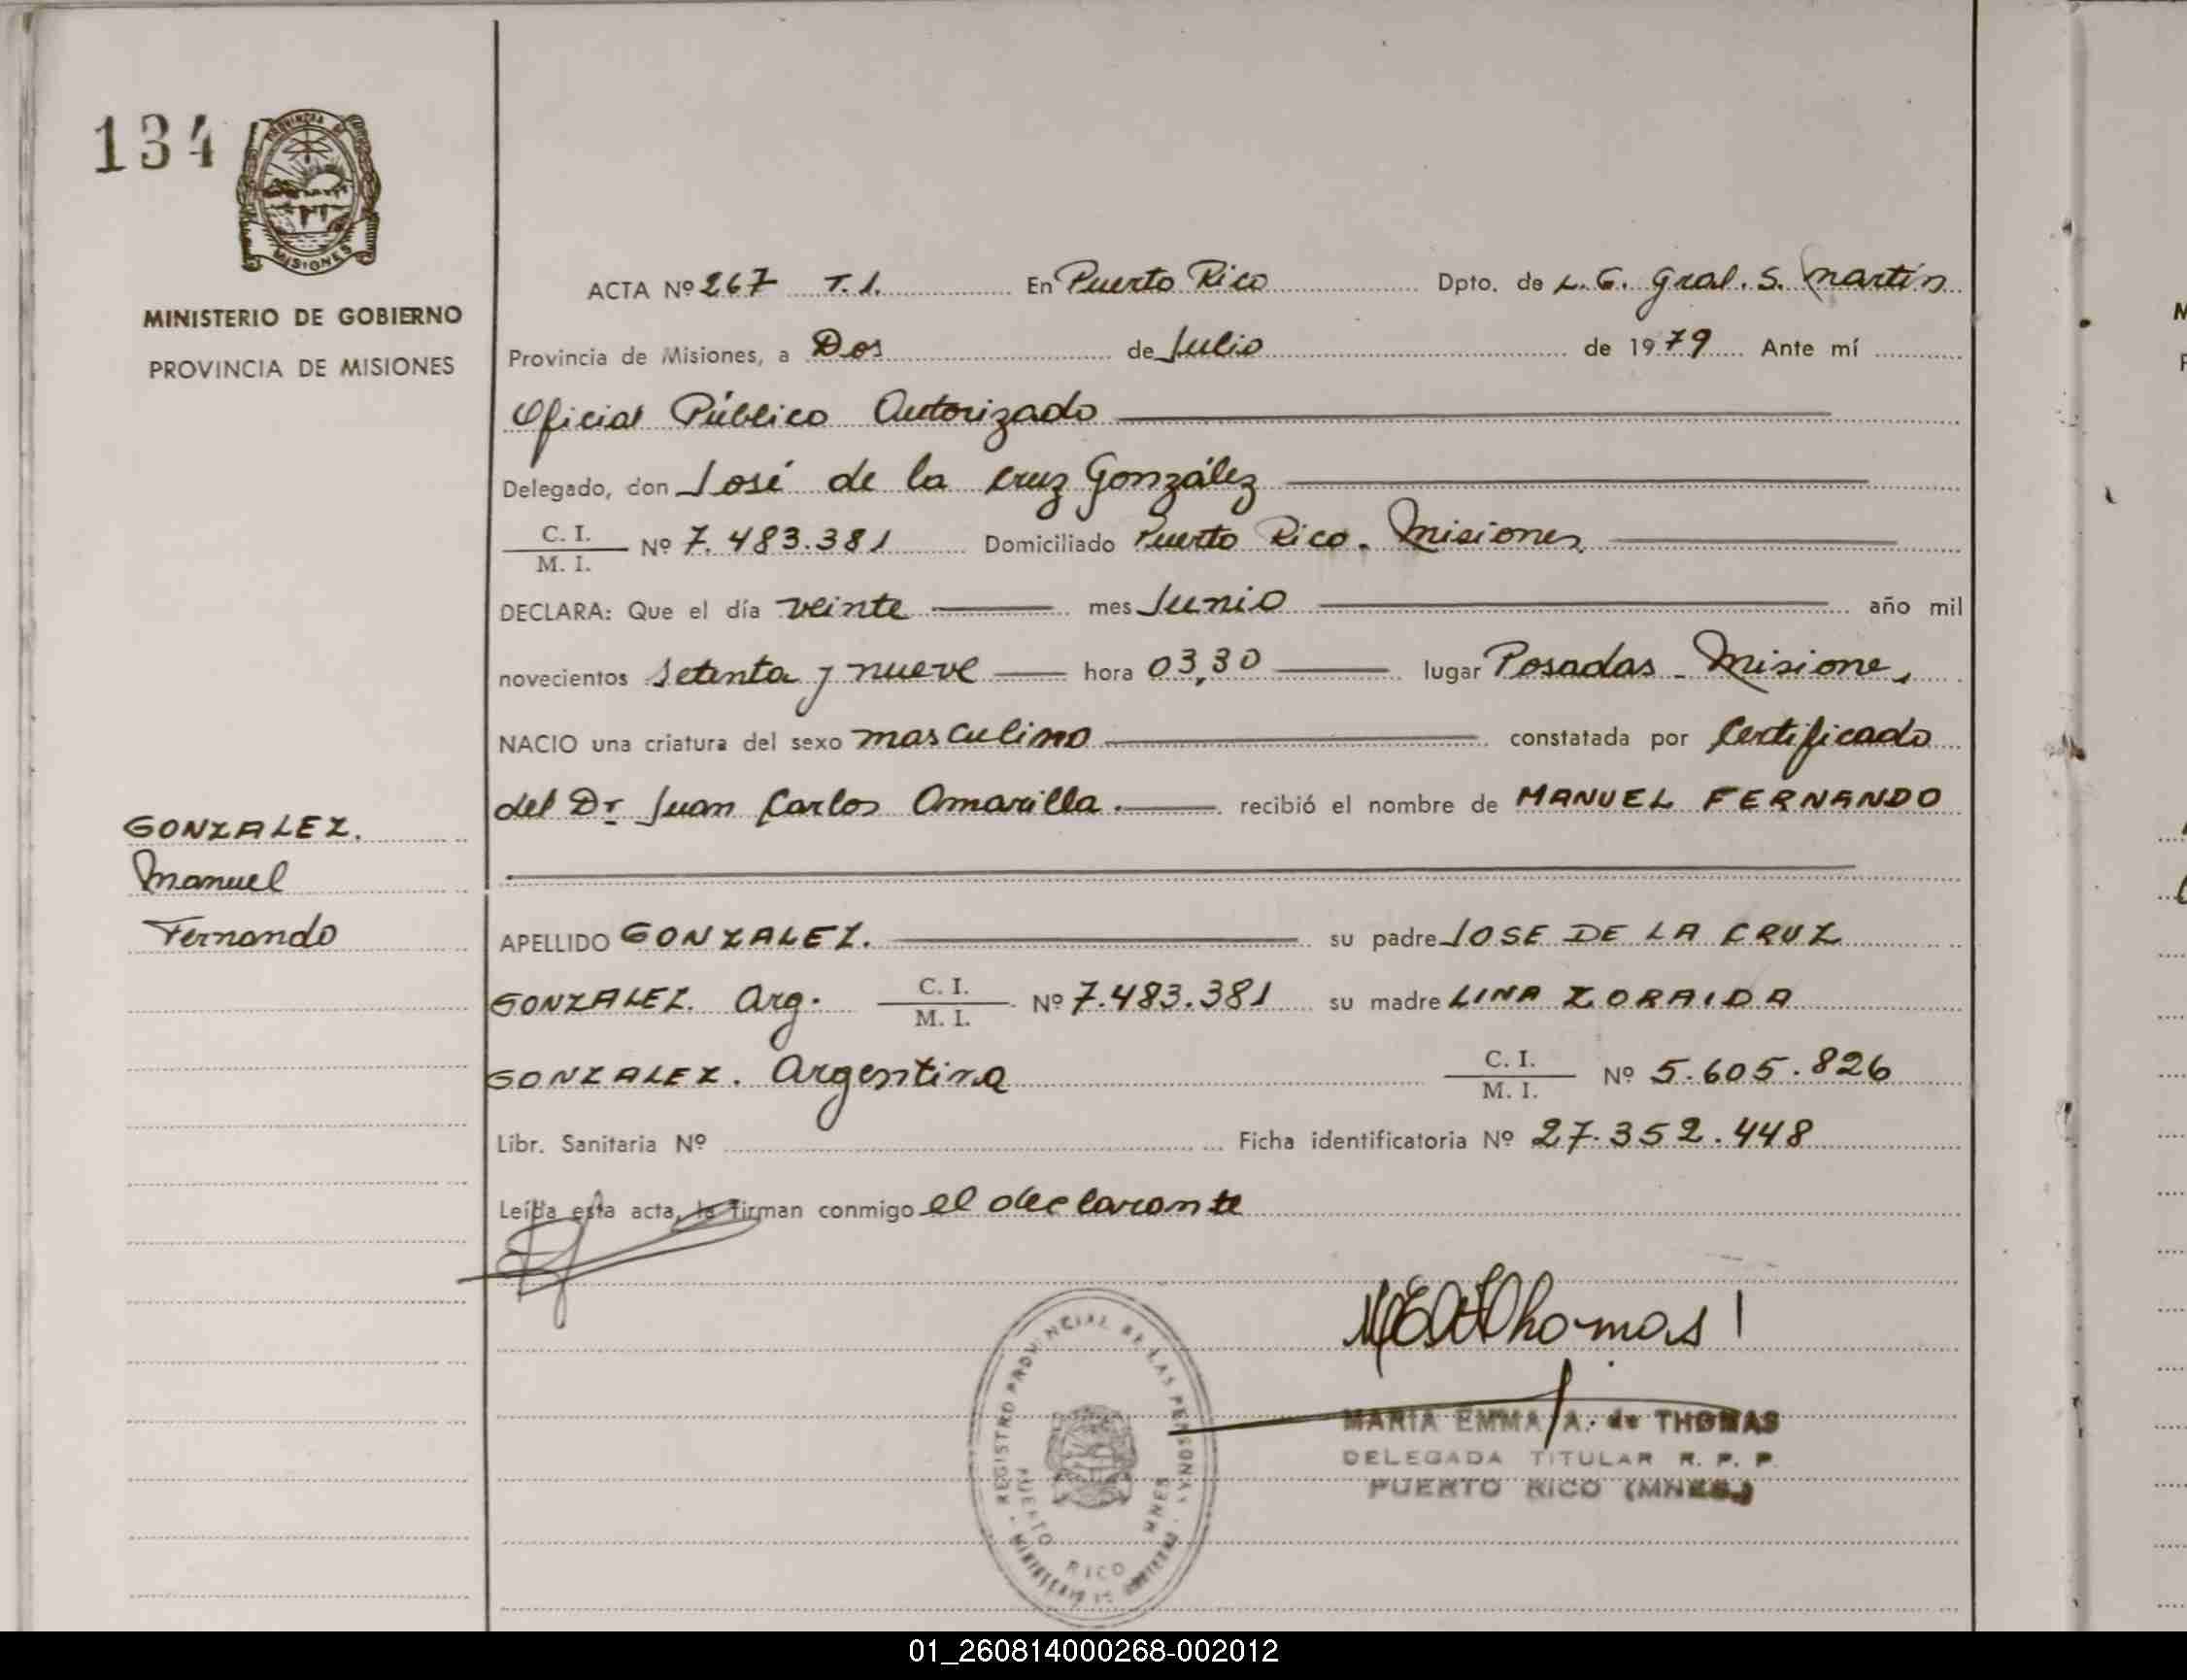 134
PROVINCIA DE
MISIONES
MINISTERIO DE GOBIERNO
PROVINCIA DE MISIONES
GONZALEZ.
Manuel
Fernando
ACTA Nº 267 T.1. En Puerto Rico Dpto. de L. G. Gral. S. Martín
Provincia de Misiones, a Dos de Julio de 1979 Ante mí
Oficial Público Autorizado
Delegado, don José de la Cruz González
C. I.
M. I. Nº 7.483.381 Domiciliado Puerto Rico. Misiones
DECLARA: Que el día veinte mes Junio año mil
novecientos setenta y nueve hora 03,30 lugar Posadas - Misiones
NACIO una criatura del sexo masculino constatada por Certificado
del Dr Juan Carlos Amarilla. recibió el nombre de MANUEL FERNANDO
APELLIDO GONZALEZ. su padre JOSE DE LA CRUZ
GONZALEZ. Arg. C. I.
M. I. Nº 7.483.381 su madre LINA ZORAIDA
GONZALEZ. Argentina C. I.
M. I. Nº 5.605.826
Libr. Sanitaria Nº Ficha identificatoria Nº 27.352.448
Leída esta acta, la firman conmigo el declarante
Thomas
REGISTRO PROVINCIAL DE LAS PERSONAS
PUERTO RICO MNES
MARIA EMMA A. de THOMAS
DELEGADA TITULAR R. P. P.
PUERTO RICO (MNES.)
01_260814000268-002012